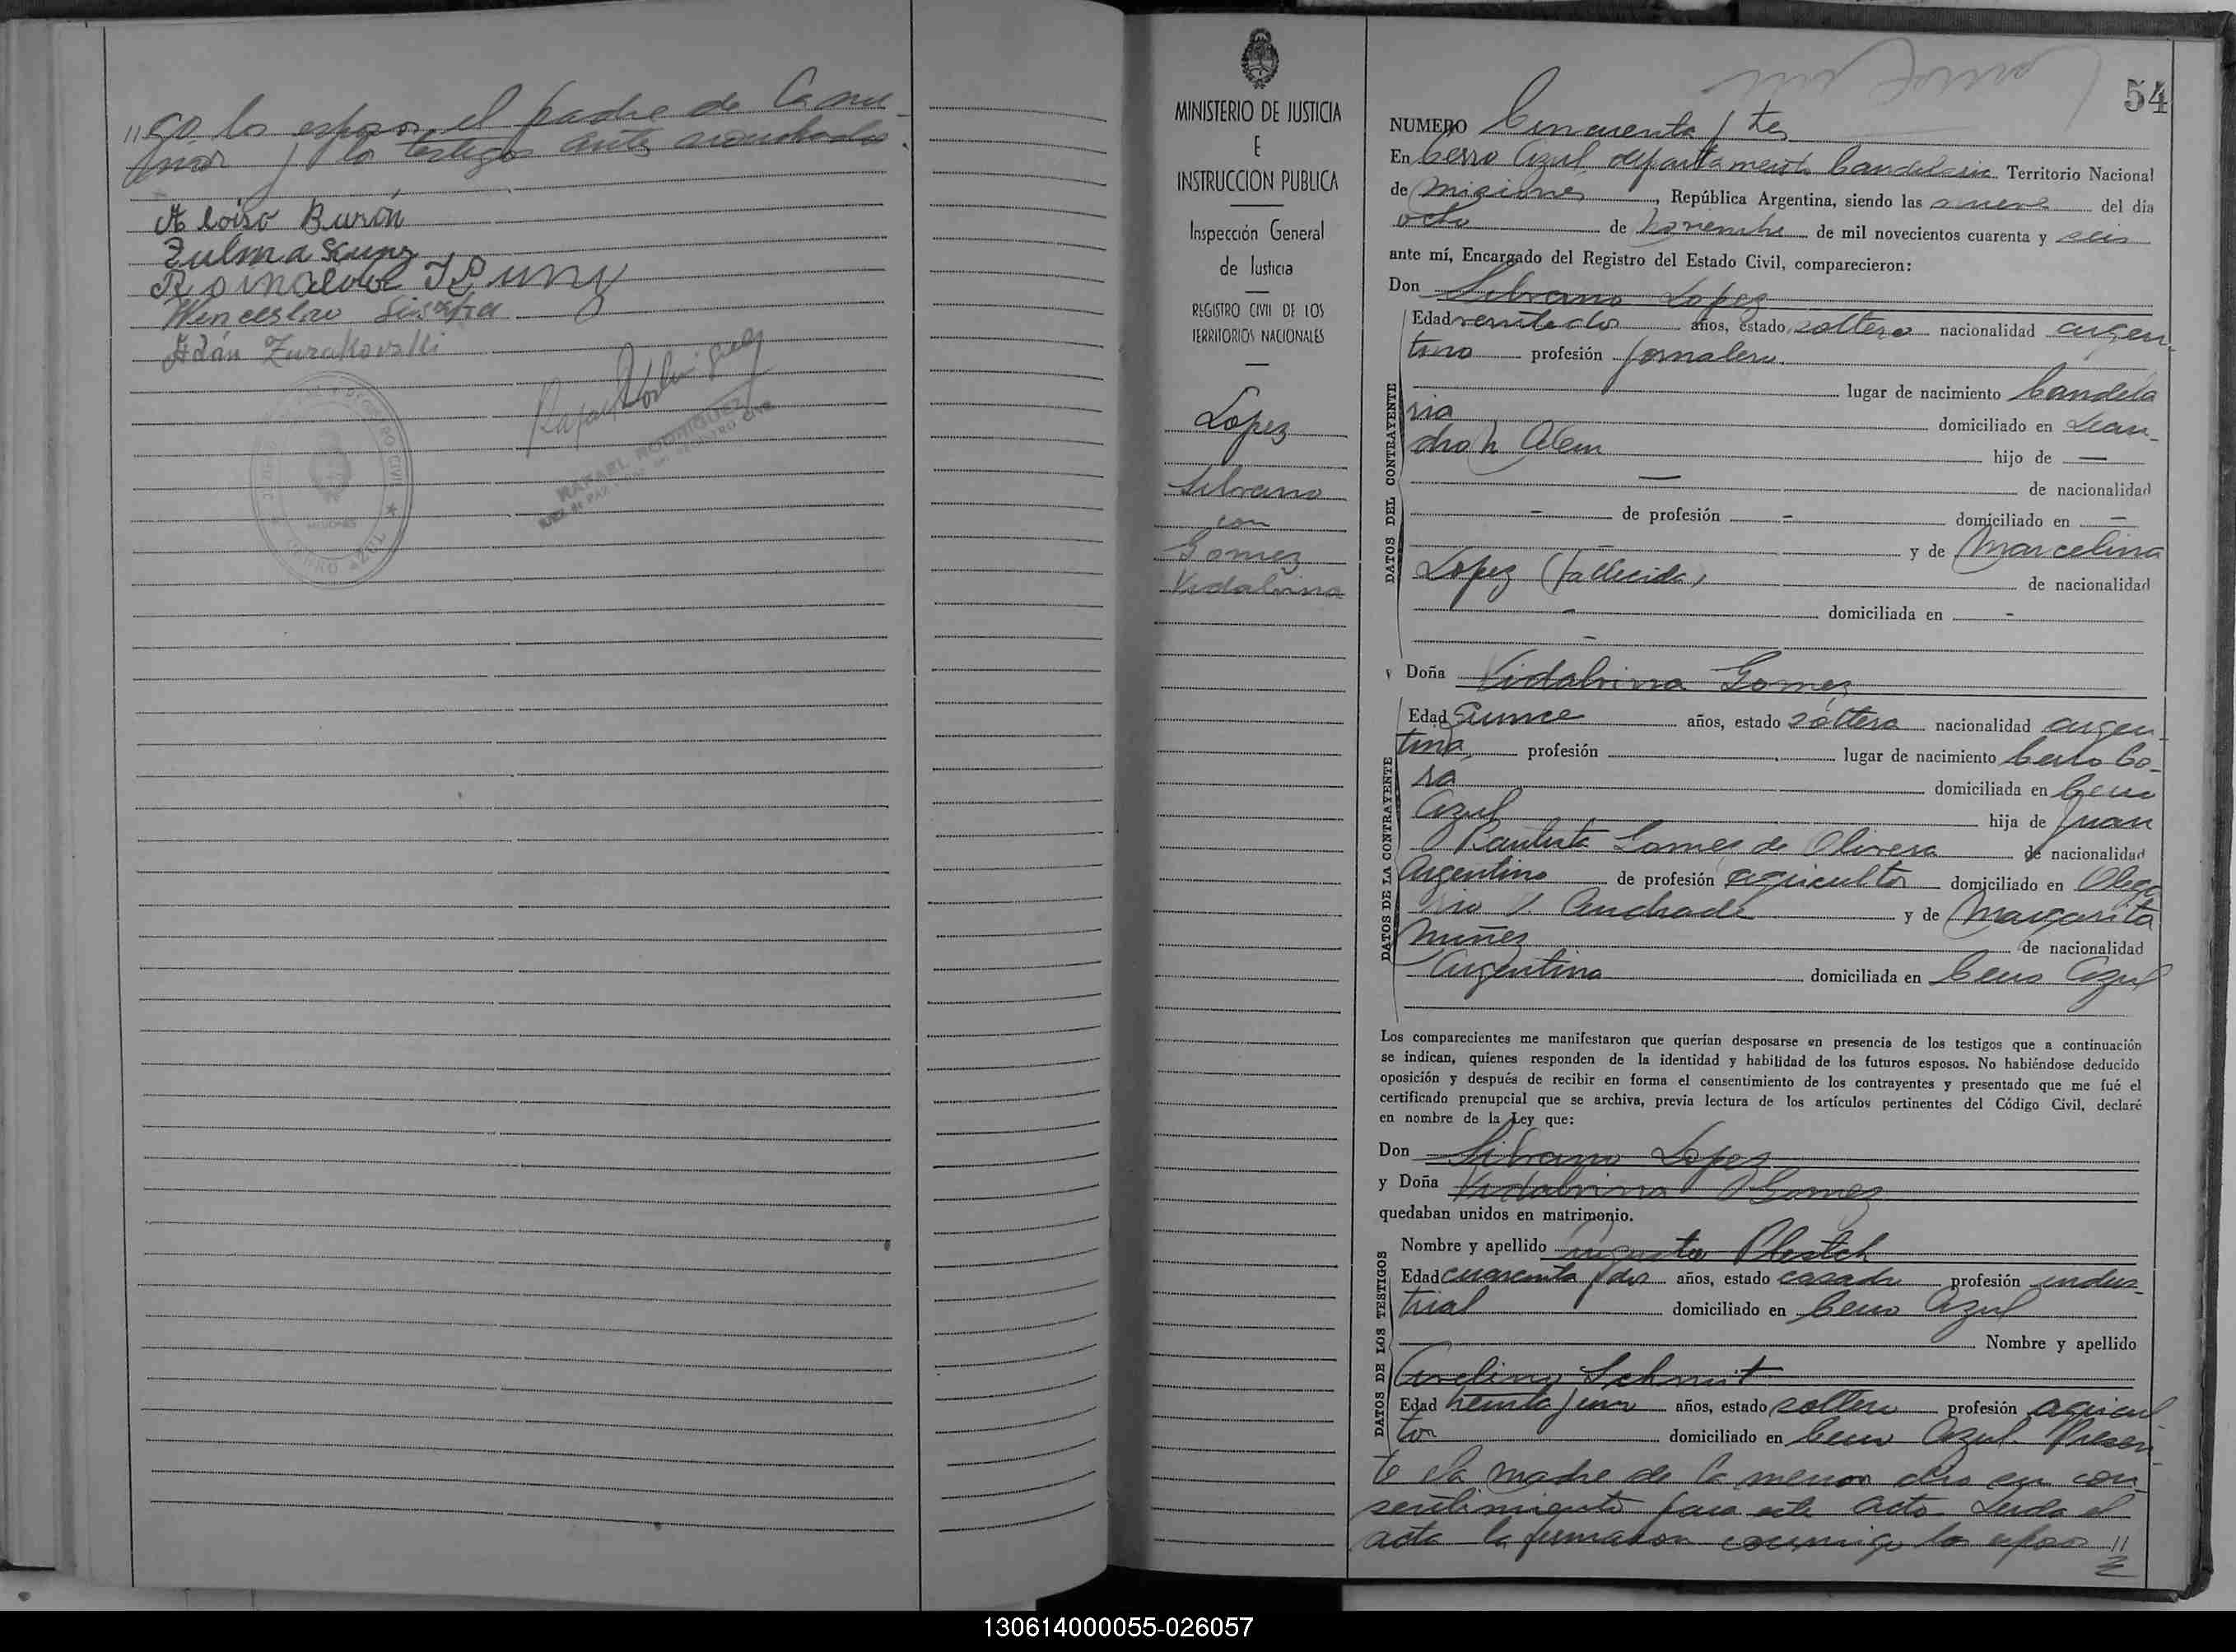 //go los esposos, el padre de la me-
nor y los testigos antes nombrados.
Aloiso Burón
Zulma Kunz
Roinaldo Kunz
Wenceslao
Adán Zurakovski
Rafael Rodriguez
RAFAEL RODRIGUEZ
MISIONES
54
MINISTERIO DE JUSTICIA
E
INSTRUCCION PUBLICA
Inspección General
de Justicia
REGISTRO CIVIL DE LOS
TERRITORIOS NACIONALES
Lopez
Silvano
con
Gomez
Vidalvina
NUMERO Cincuenta y tres
En Cerro Azul departamento Candelaria Territorio Nacional
de Misiones, República Argentina, siendo las nueve del día
ocho de Noviembre de mil novecientos cuarenta y seis
ante mí, Encargado del Registro del Estado Civil, comparecieron:
Don Silvano Lopez
DATOS DEL CONTRAYENTE
Edad veintidos años, estado soltero nacionalidad argen-
tino profesión jornalero
lugar de nacimiento Candela
ria domiciliado en Lean-
dro N Alem hijo de —
— de nacionalidad
- de profesión - domiciliado en —
- y de Marcelina
Lopez (fallecida) de nacionalidad
- domiciliada en -
-
y Doña Vidalvina Gomez
DATOS DE LA CONTRAYENTE
Edad Quince años, estado soltera nacionalidad argen-
tina, profesión lugar de nacimiento Cerro Co-
ra domiciliada en Cerro
Azul hija de Juan
Bautista Gomez de Olivera de nacionalidad
Argentino de profesión agricultor domiciliado en Olega
rio V. Andrade y de Margarita
Nuñez de nacionalidad
Argentina domiciliada en Cerro Azul
Los comparecientes me manifestaron que querían desposarse en presencia de los testigos que a continuación
se indican, quienes responden de la identidad y habilidad de los futuros esposos. No habiéndose deducido
oposición y después de recibir en forma el consentimiento de los contrayentes y presentado que me fué el
certificado prenupcial que se archiva, previa lectura de los artículos pertinentes del Código Civil, declaré
en nombre de la Ley que:
Don Silvano Lopez
y Doña Vidalvina Gomez
quedaban unidos en matrimonio.
DATOS DE LOS TESTIGOS
Nombre y apellido Augusto
Edad cuarenta y dos años, estado casado profesión indus-
trial domiciliado en Cerro Azul
Nombre y apellido
Avelino Schmit
Edad treinta y un años, estado soltero profesión agricul-
tor domiciliado en Cerro Azul. Presen-
te la madre de la menor dio su con-
sentimiento para este acto. Leida el
acta la firmaron conmigo los esposos //
130614000055-026057